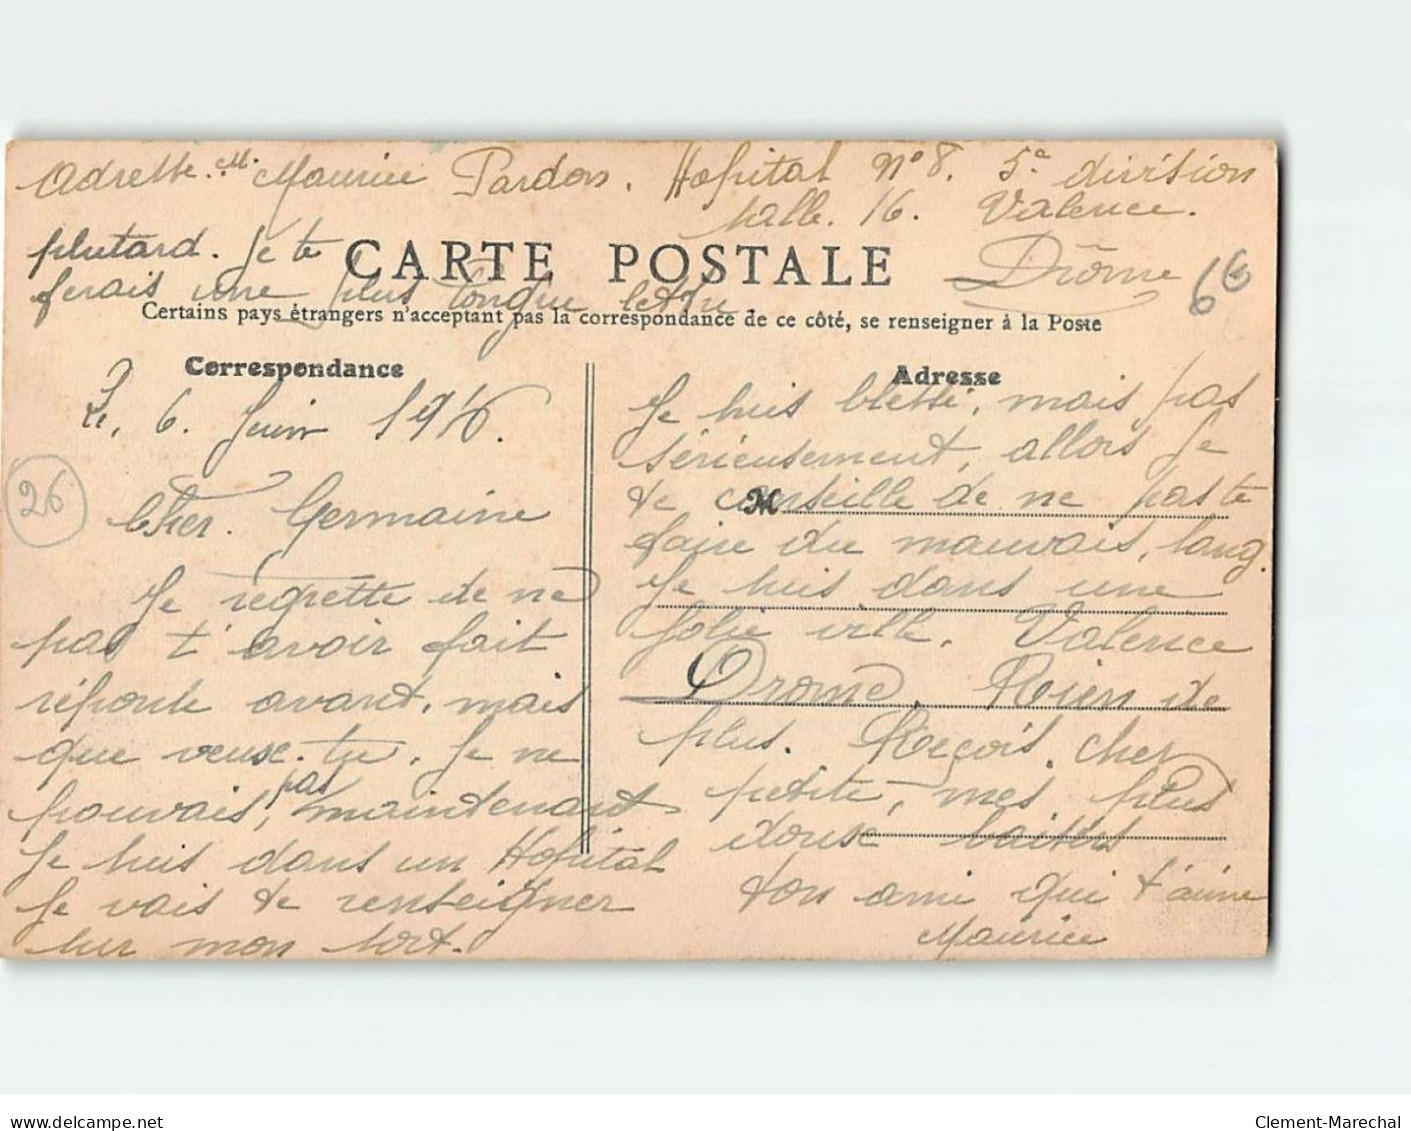 Adresse. M. Maurice Pardon. Hopital N° 8. 5e division
salle. 16. Valence.
Drôme
plutard. Je te
ferais une plus longue lettre.
CARTE POSTALE
66
Certains pays étrangers n'acceptent pas la correspondance de ce côté, se renseigner à la Poste
Correspondance
Le, 6. Juin 1916.
26
Cher. Germaine
Je regrette de ne
pas t'avoir fait
réponse avant, mais
que veux-tu. Je ne
pouvais, pas maintenant
Je suis dans un Hopital
Je vais te renseigner
sur mon sort.
Adresse
Je suis blessé, mais pas
sérieusement, allors je
te conseille de ne pas te
M
faire du mauvais, sang.
Je suis dans une
jolie ville. Valence
Drome. Rien de
plus. Reçois, cher
petite, mes plus
doux baisers
ton ami qui t'aime
Maurice
www.delcampe.net
Clement-Marechal